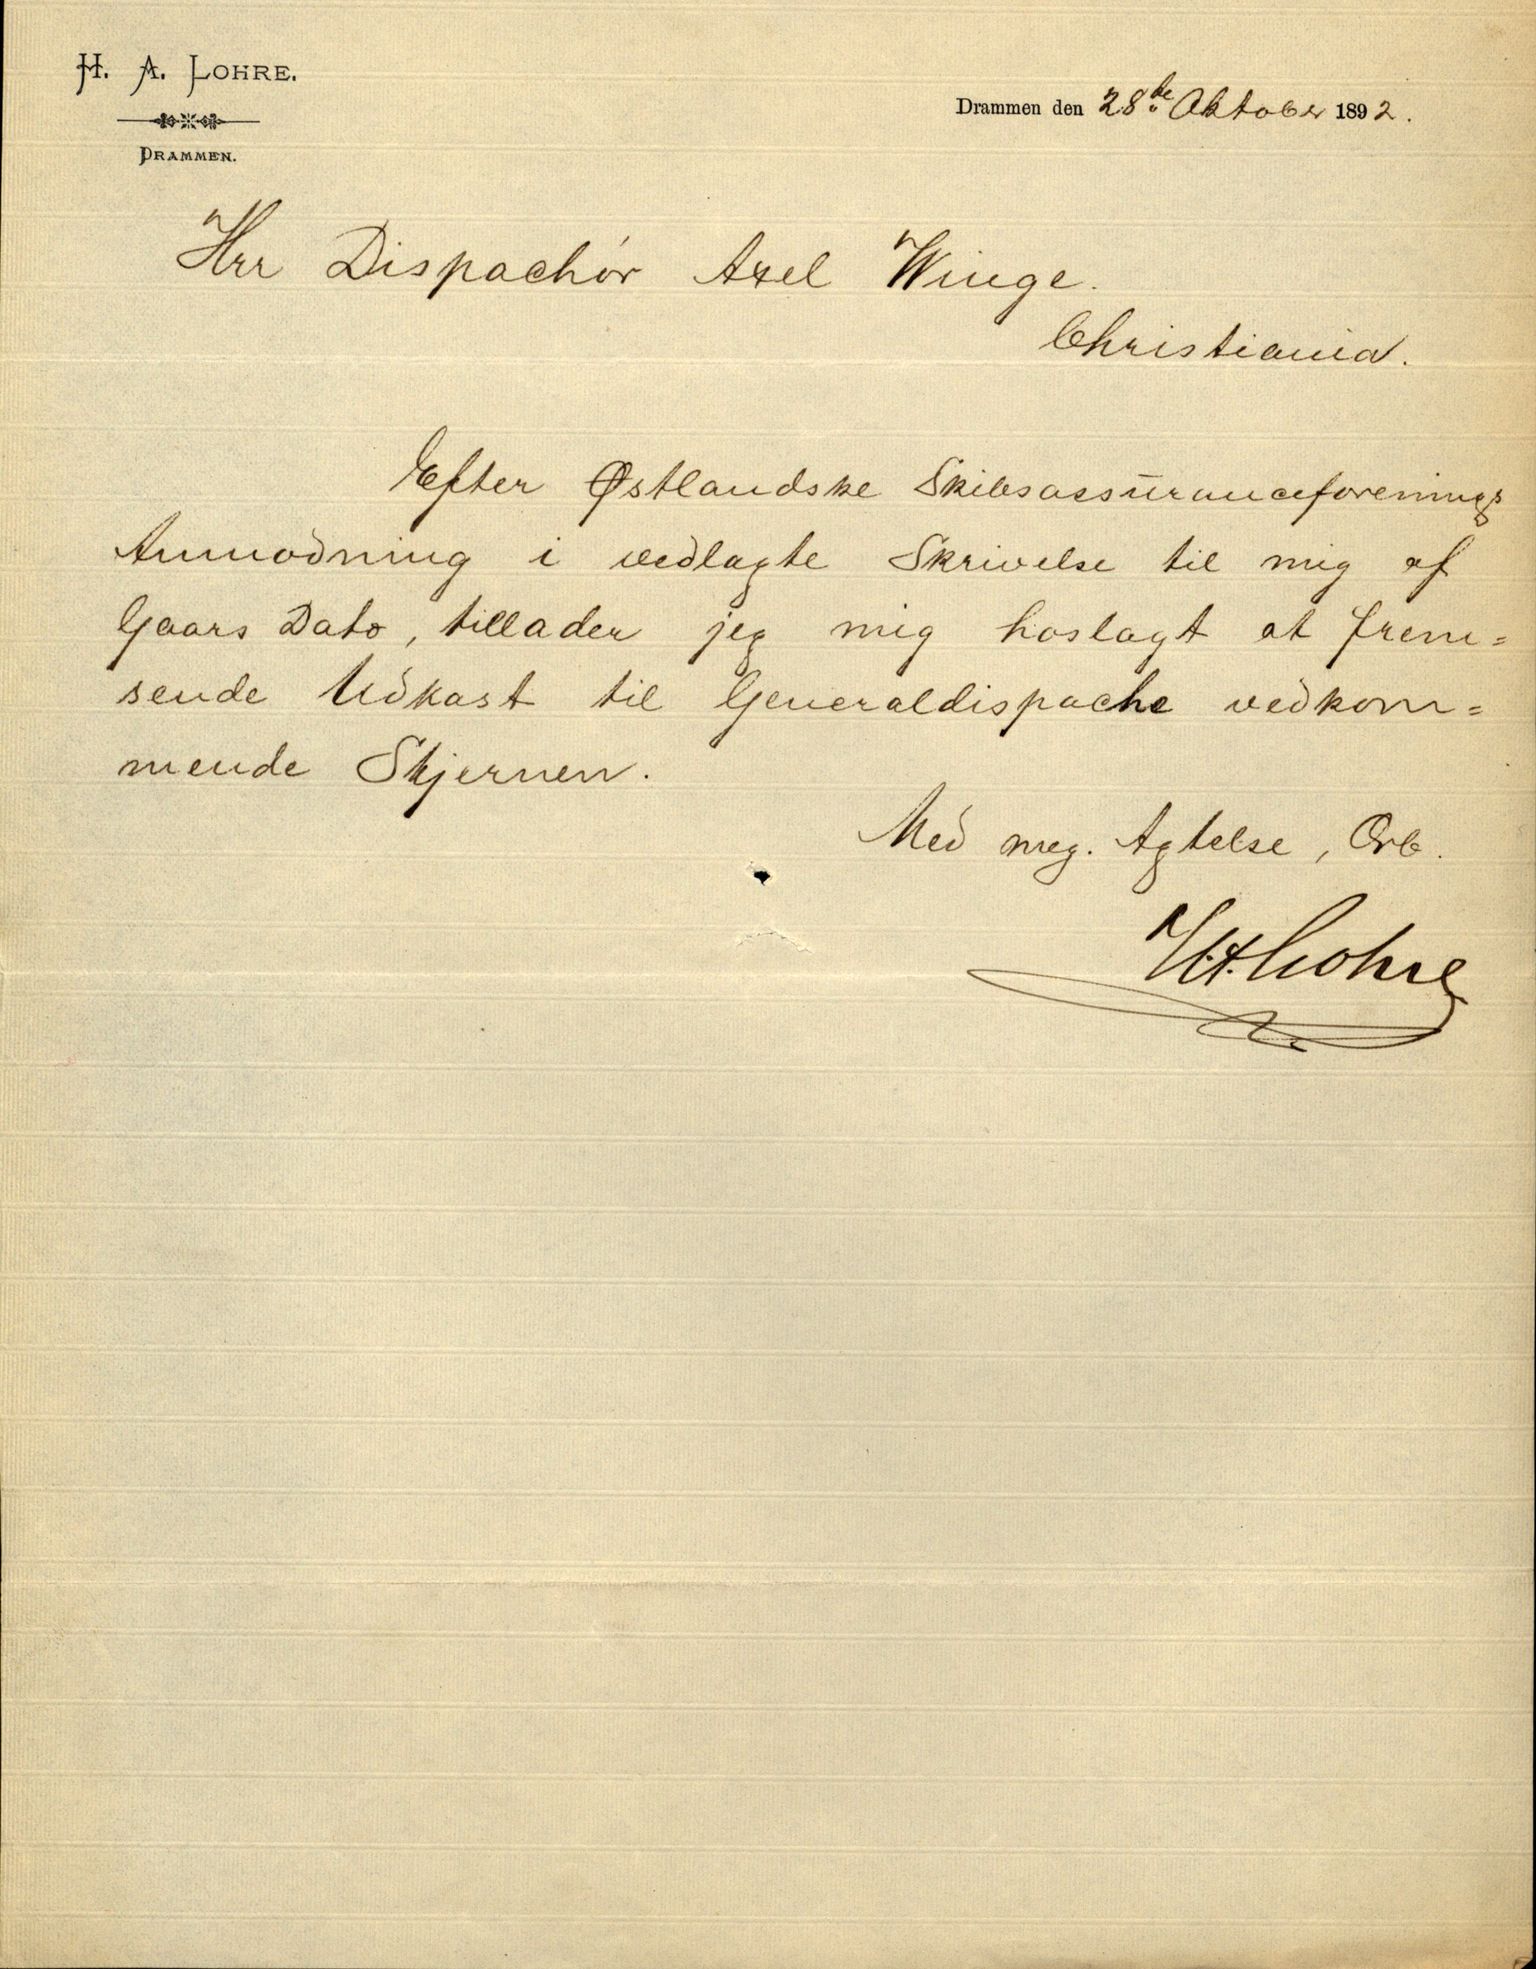 H. A. LOHRE.
DRAMMEN.
Drammen den 28de Oktober 1892.
Hrr Dispachór Axel Winge.
Christiania.
Efter Østlandske Skibsassuranceforenings
Anmodning i vedlagte Skrivelse til mig af
Gaars Dato, tillader jeg mig hoslagt at frem=
sende Udkast til Generaldispache vedkom=
mende Skjernen.
Med meg. Agtelse, Erb.
H.A. Lohre